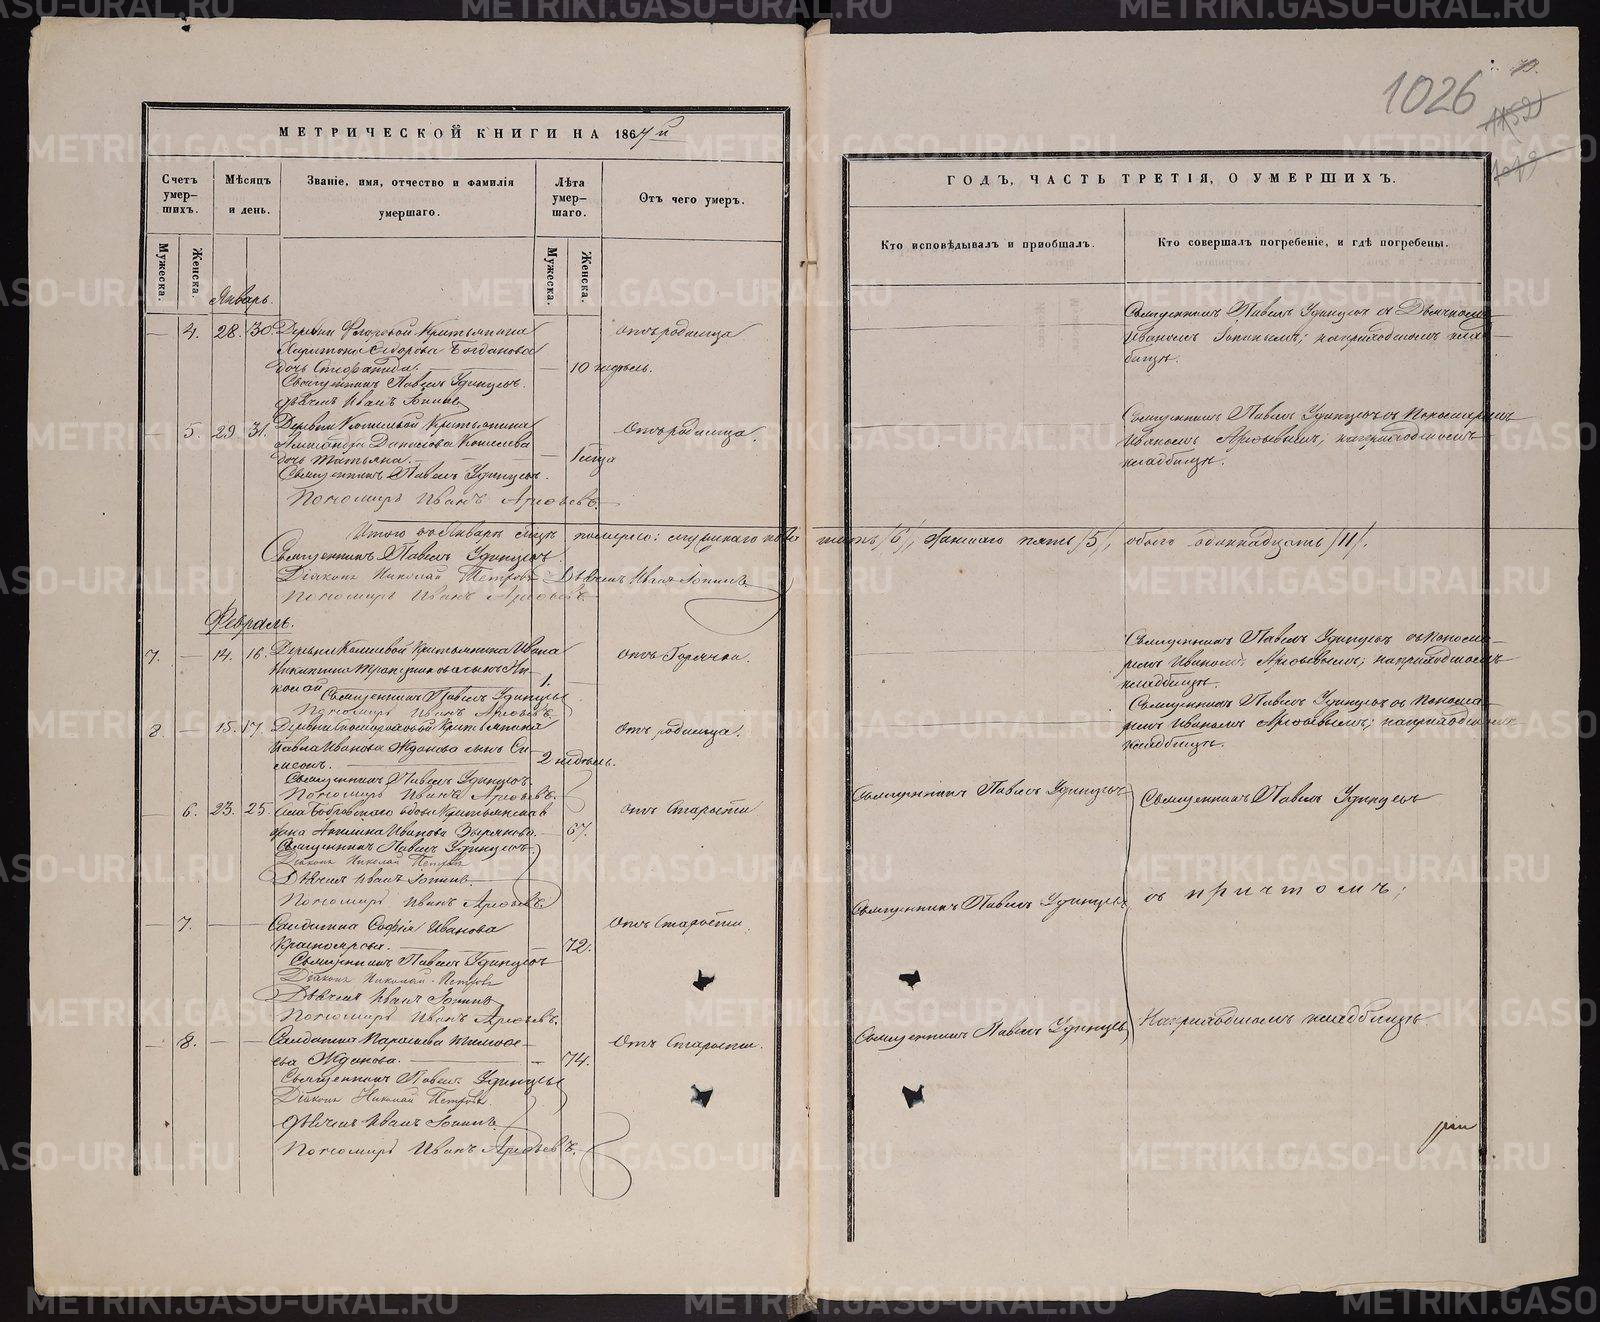 МЕТРИЧЕСКОЙ КНИГИ НА 1867й
Счетъ умер-шихъ.
Мѣсяцъ и день.
Званіе, имя, отчество и фамилія умершаго.
Лѣта умер-шаго.
Отъ чего умеръ.
Мужеска.
Женска.
Мужеска.
Женска.
Январь.
4. 28. 30. Деревни Крестьянина отъ родимца
Харитона Сидорова Богданова
дочь 10 недѣль.
Священникъ Павелъ Удинцевъ.
Дьячекъ Иванъ
5. 29 31. Деревни Крестьянина Отъ родимца.
Александра Данилова
дочь Татьяна. 1 мца
Священникъ Павелъ Удинцевъ.
Пономарь Иванъ Арефьевъ.
Итого въ Январѣ мцѣ померло: мужескаго пола шесть /6/, женскаго пять /5/, обоего одиннадцать /11/.
Священникъ Павелъ Удинцевъ
Діаконъ Николай Петровъ Дьячекъ Иванъ
Пономарь Иванъ Арефьевъ.
Февраль.
7. 14. 16. Деревни Крестьянина Ивана отъ Горячки.
Никитина сынъ Ни-
колай 1.
Священникъ Павелъ Удинцевъ
Пономарь Иванъ Арефьевъ.
8. 15. 17. Деревни Крестьянина Отъ родимца.
Павла Иванова Жданова сынъ Си-
меонъ. 2 недѣль.
Священникъ Павелъ Удинцевъ.
Пономарь Иванъ Арефьевъ.
6. 23. 25. Села Бобровскаго вдова Крестьянская отъ Старости
жена Иванова Зырянова. 67.
Священникъ Павелъ Удинцевъ.
Діаконъ Николай Петровъ
Дьячекъ Иванъ
Пономарь Иванъ Арефьевъ.
7. Солдатка Софія Иванова Отъ Старости.
Красноярова. 72.
Священникъ Павелъ Удинцевъ
Діаконъ Николай Петровъ
Дьячекъ Иванъ
Пономарь Иванъ Арефьевъ.
8. Солдатка Параскева Тимофе- Отъ Старости.
ева Жданова. 74.
Священникъ Павелъ Удинцевъ
Діаконъ Николай Петровъ.
Дьячекъ Иванъ
Пономарь Иванъ Арефьевъ.
1026
ГОДЪ, ЧАСТЬ ТРЕТІЯ, О УМЕРШИХЪ.
Кто исповѣдывалъ и пріобщалъ.
Кто совершалъ погребеніе, и гдѣ погребены.
Священникъ Павелъ Удинцевъ съ Дьячкомъ
Иваномъ на приходскомъ клад-
бищѣ.
Священникъ Павелъ Удинцевъ съ Пономаремъ
Иваномъ Арефьевымъ; на приходскомъ
кладбищѣ.
Священникъ Павелъ Удинцевъ съ Понома-
ремъ Иваномъ Арефьевымъ; на приходскомъ
кладбищѣ.
Священникъ Павелъ Удинцевъ съ Понома-
ремъ Иваномъ Арефьевымъ; на приходскомъ
кладбищѣ.
Священникъ Павелъ Удинцевъ Священникъ Павелъ Удинцевъ
Священникъ Павелъ Удинцевъ съ причтомъ;
Священникъ Павелъ Удинцевъ На приходскомъ кладбищѣ.
METRIKI.GASO-URAL.RU